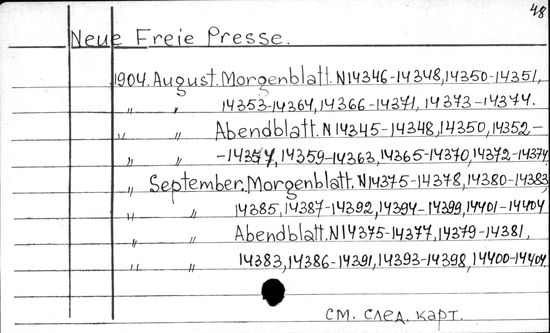 48
Neue Freie Presse.
1904. August. Morgenblatt. N14346-14348, 14350-14351,
" " 14353-14364, 14366-14371, 14373-14374.
" " Abendblatt. N14345-14348, 14350, 14352-
" " -14357, 14359-14363, 14365-14370, 14372-14374
" September. Morgenblatt. N14375-14378, 14380-14383,
" " 14385, 14387-14392, 14394-14399, 14401-14404
" " Abendblatt. N14375-14377, 14379-14381,
" " 14383, 14386-14391, 14393-14398, 14400-14404
см. след. карт.